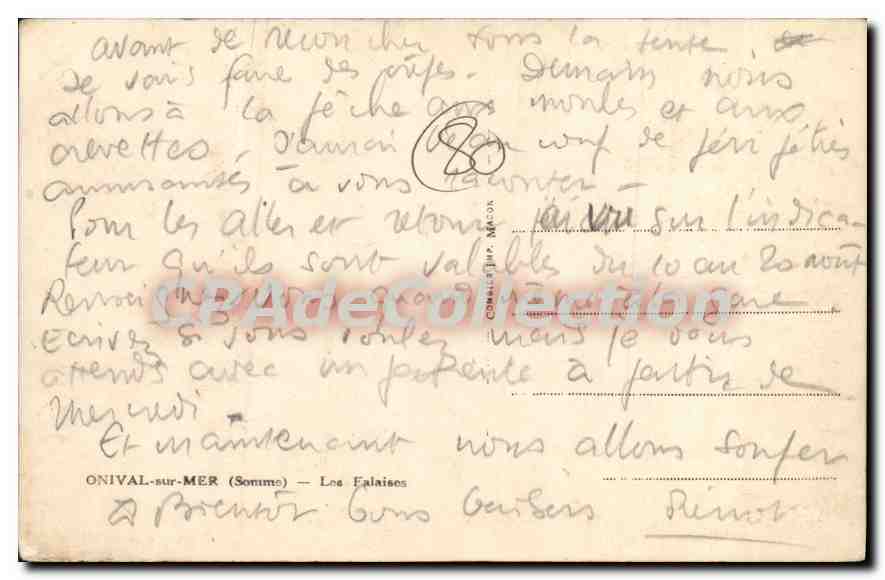 avant de se coucher sous la tente
Je vais faire des crêpes. Demain nous
allons à la pêche aux moules et aux
crevettes, J'aurai de
8
à vous raconter -
Pour les aller et retour j'ai vu sur l'indica-
teur qu'ils sont valables du 10 au 20 août
quand même à la gare.
Ecrivez si vous voulez mais je vous
attends avec impatience à partir de
Mercredi.
Et maintenant nous allons souper
ONIVAL-sur-MER (Somme) — Les Falaises
A Bientôt Bons baisers
COMBIER IMP. MACON
CPAdeCollection